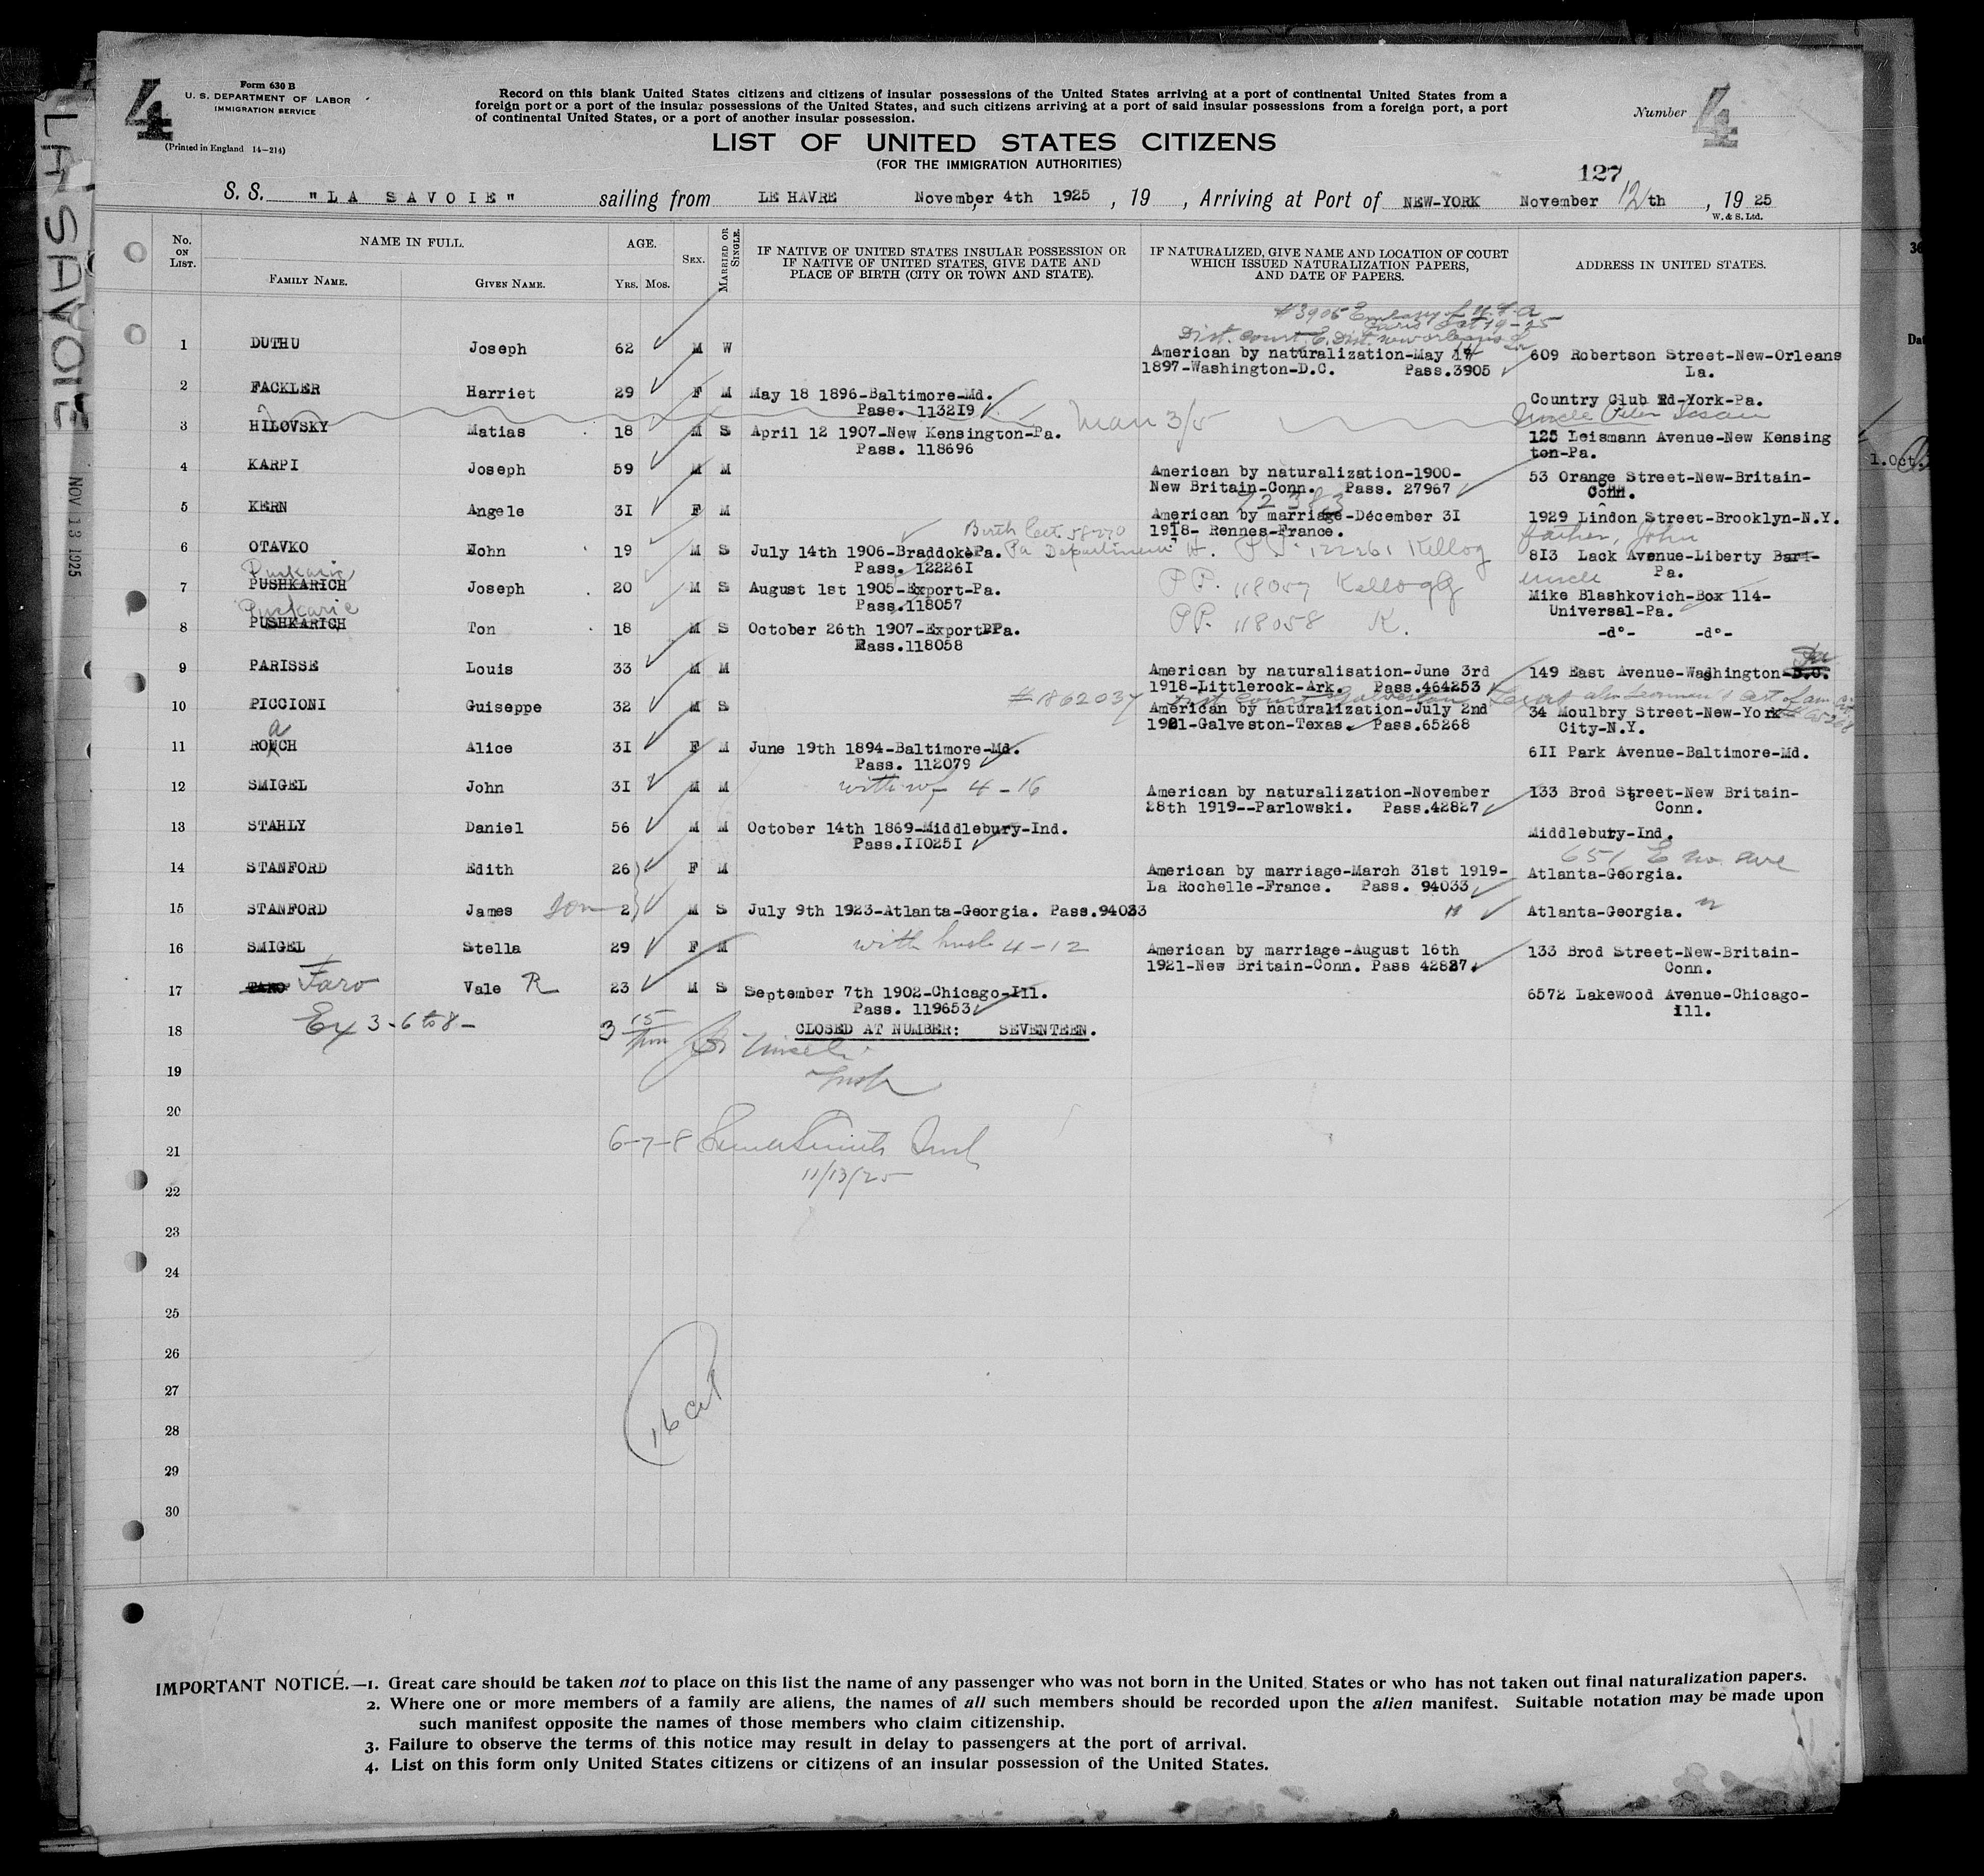 4
Form 630 B
U. S. DEPARTMENT OF LABOR
IMMIGRATION SERVICE
(Printed in England 14—214)
Record on this blank United States citizens and citizens of insular possessions of the United States arriving at a port of continental United States from a
foreign port or a port of the insular possessions of the United States, and such citizens arriving at a port of said insular possessions from a foreign port, a port
of continental United States, or a port of another insular possession.
Number 4
LIST OF UNITED STATES CITIZENS
(FOR THE IMMIGRATION AUTHORITIES)
127
S. S. "LA SAVOIE" sailing from LE HAVRE November 4th 1925, 19 , Arriving at Port of NEW-YORK November 12th, 1925
W. & S. Ltd.
No. ON LIST.
NAME IN FULL.
FAMILY NAME. GIVEN NAME.
AGE.
YRS. MOS.
SEX.
MARRIED OR SINGLE.
IF NATIVE OF UNITED STATES INSULAR POSSESSION OR
IF NATIVE OF UNITED STATES, GIVE DATE AND
PLACE OF BIRTH (CITY OR TOWN AND STATE).
IF NATURALIZED, GIVE NAME AND LOCATION OF COURT
WHICH ISSUED NATURALIZATION PAPERS,
AND DATE OF PAPERS.
ADDRESS IN UNITED STATES.
#3905 Embassy of U.S.A
Paris Oct 19-25
Dist. Court, E. Dist. New Orleans
1 DUTHU Joseph 62 M W American by naturalization-May 14 609 Robertson Street-New-Orleans
1897-Washington-D.C. Pass.3905 La.
2 FACKLER Harriet 29 F M May 18 1896-Baltimore-Md. Country Club Rd-York-Pa.
Pass. 113219
Uncle Peter
3 HILOVSKY Matias 18 M S April 12 1907-New Kensington-Pa. 125 Leismann Avenue-New Kensing
Pass. 118696 ton-Pa.
4 KARPI Joseph 59 M M American by naturalization-1900- 53 Orange Street-New-Britain-
New Britain-Conn. Pass. 27967 Conn.
22383
5 KERN Angele 31 F M American by marriage-Décember 31 1929 Lindon Street-Brooklyn-N.Y.
1918- Rennes-France.
Birth Cert. 58270 father, John
6 OTAVKO John 19 M S July 14th 1906-Braddok-Pa. Pa Department H. P.P. 122261 Kellog 813 Lack Avenue-Liberty Bart-
Pass. 122261 Pa.
Puskaric uncle
7 PUSHKARICH Joseph 20 M S August 1st 1905-Export-Pa. P P. 118057 Kellogg Mike Blashkovich-Box 114-
Pass.118057 Universal-Pa.
Puskaric
8 PUSHKARICH Ton 18 M S October 26th 1907-Export-Pa. P P. 118058 K. -d°- -d°-
Pass.118058
9 PARISSE Louis 33 M M American by naturalisation-June 3rd 149 East Avenue-Washington-D.C.
1918-Littlerock-Ark. Pass.464253
#1862037 Dist Court Galveston Texas
10 PICCIONI Guiseppe 32 M S American by naturalization-July 2nd 34 Moulbry Street-New-York
1921-Galveston-Texas. Pass.65268 City-N.Y.
a
11 ROUCH Alice 31 F M June 19th 1894-Baltimore-Md. 611 Park Avenue-Baltimore-Md.
Pass. 112079
12 SMIGEL John 31 M M with wf 4-16 American by naturalization-November 133 Brod Street-New Britain-
28th 1919--Parlowski. Pass.42827 Conn.
13 STAHLY Daniel 56 M M October 14th 1869-Middlebury-Ind. Middlebury-Ind.
Pass.110251
651 E No. Ave
14 STANFORD Edith 26 F M American by marriage-March 31st 1919- Atlanta-Georgia.
La Rochelle-France. Pass. 94033
15 STANFORD James son 2 M S July 9th 1923-Atlanta-Georgia. Pass.94033 " Atlanta-Georgia. "
16 SMIGEL Stella 29 F M with husb 4-12 American by marriage-August 16th 133 Brod Street-New-Britain-
1921-New Britain-Conn. Pass 42827. Conn.
17 TARO Faro Vale R 23 M S September 7th 1902-Chicago-Ill. 6572 Lakewood Avenue-Chicago-
Pass. 119653 Ill.
Ex 3-6 to 8-
18 CLOSED AT NUMBER: SEVENTEEN.
19
20
6-7-8
21
11/13/25
22
23
24
25
26
27
16 cit
28
29
30
IMPORTANT NOTICE.—1. Great care should be taken not to place on this list the name of any passenger who was not born in the United States or who has not taken out final naturalization papers.
2. Where one or more members of a family are aliens, the names of all such members should be recorded upon the alien manifest. Suitable notation may be made upon
such manifest opposite the names of those members who claim citizenship.
3. Failure to observe the terms of this notice may result in delay to passengers at the port of arrival.
4. List on this form only United States citizens or citizens of an insular possession of the United States.
LA SAVOIE
NOV 13 1925